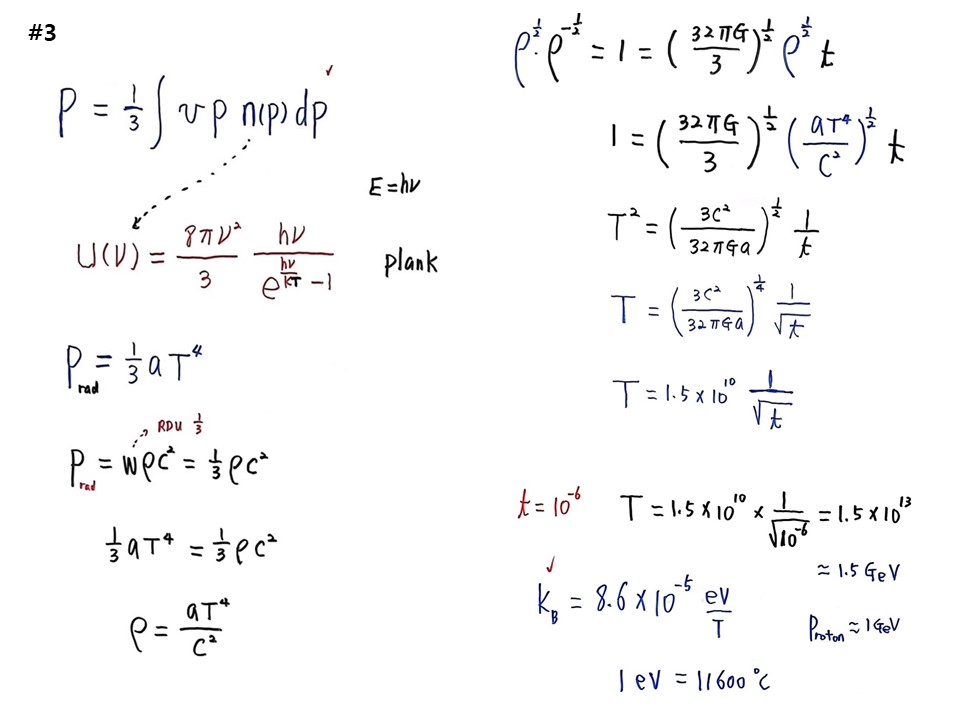 #3
P = 1/3 ∫ v p n(p) dp ✓
E = hν
U(ν) = 8πν²/3 hν/(e^(hν/kT) - 1) plank
P_rad = 1/3 aT⁴
RDU 1/3
P_rad = wρc² = 1/3 ρc²
1/3 aT⁴ = 1/3 ρc²
ρ = aT⁴/c²
ρ^(1/2) · ρ^(-1/2) = 1 = (32πG/3)^(1/2) ρ^(1/2) t
1 = (32πG/3)^(1/2) (aT⁴/c²)^(1/2) t
T² = (3c²/32πGa)^(1/2) 1/t
T = (3c²/32πGa)^(1/4) 1/√t
T = 1.5 × 10¹⁰ 1/√t
t = 10⁻⁶ T = 1.5 × 10¹⁰ × 1/√10⁻⁶ = 1.5 × 10¹³
≈ 1.5 GeV
✓
k_B = 8.6 × 10⁻⁵ eV/T
Proton ≈ 1 GeV
1 eV = 11600 °C